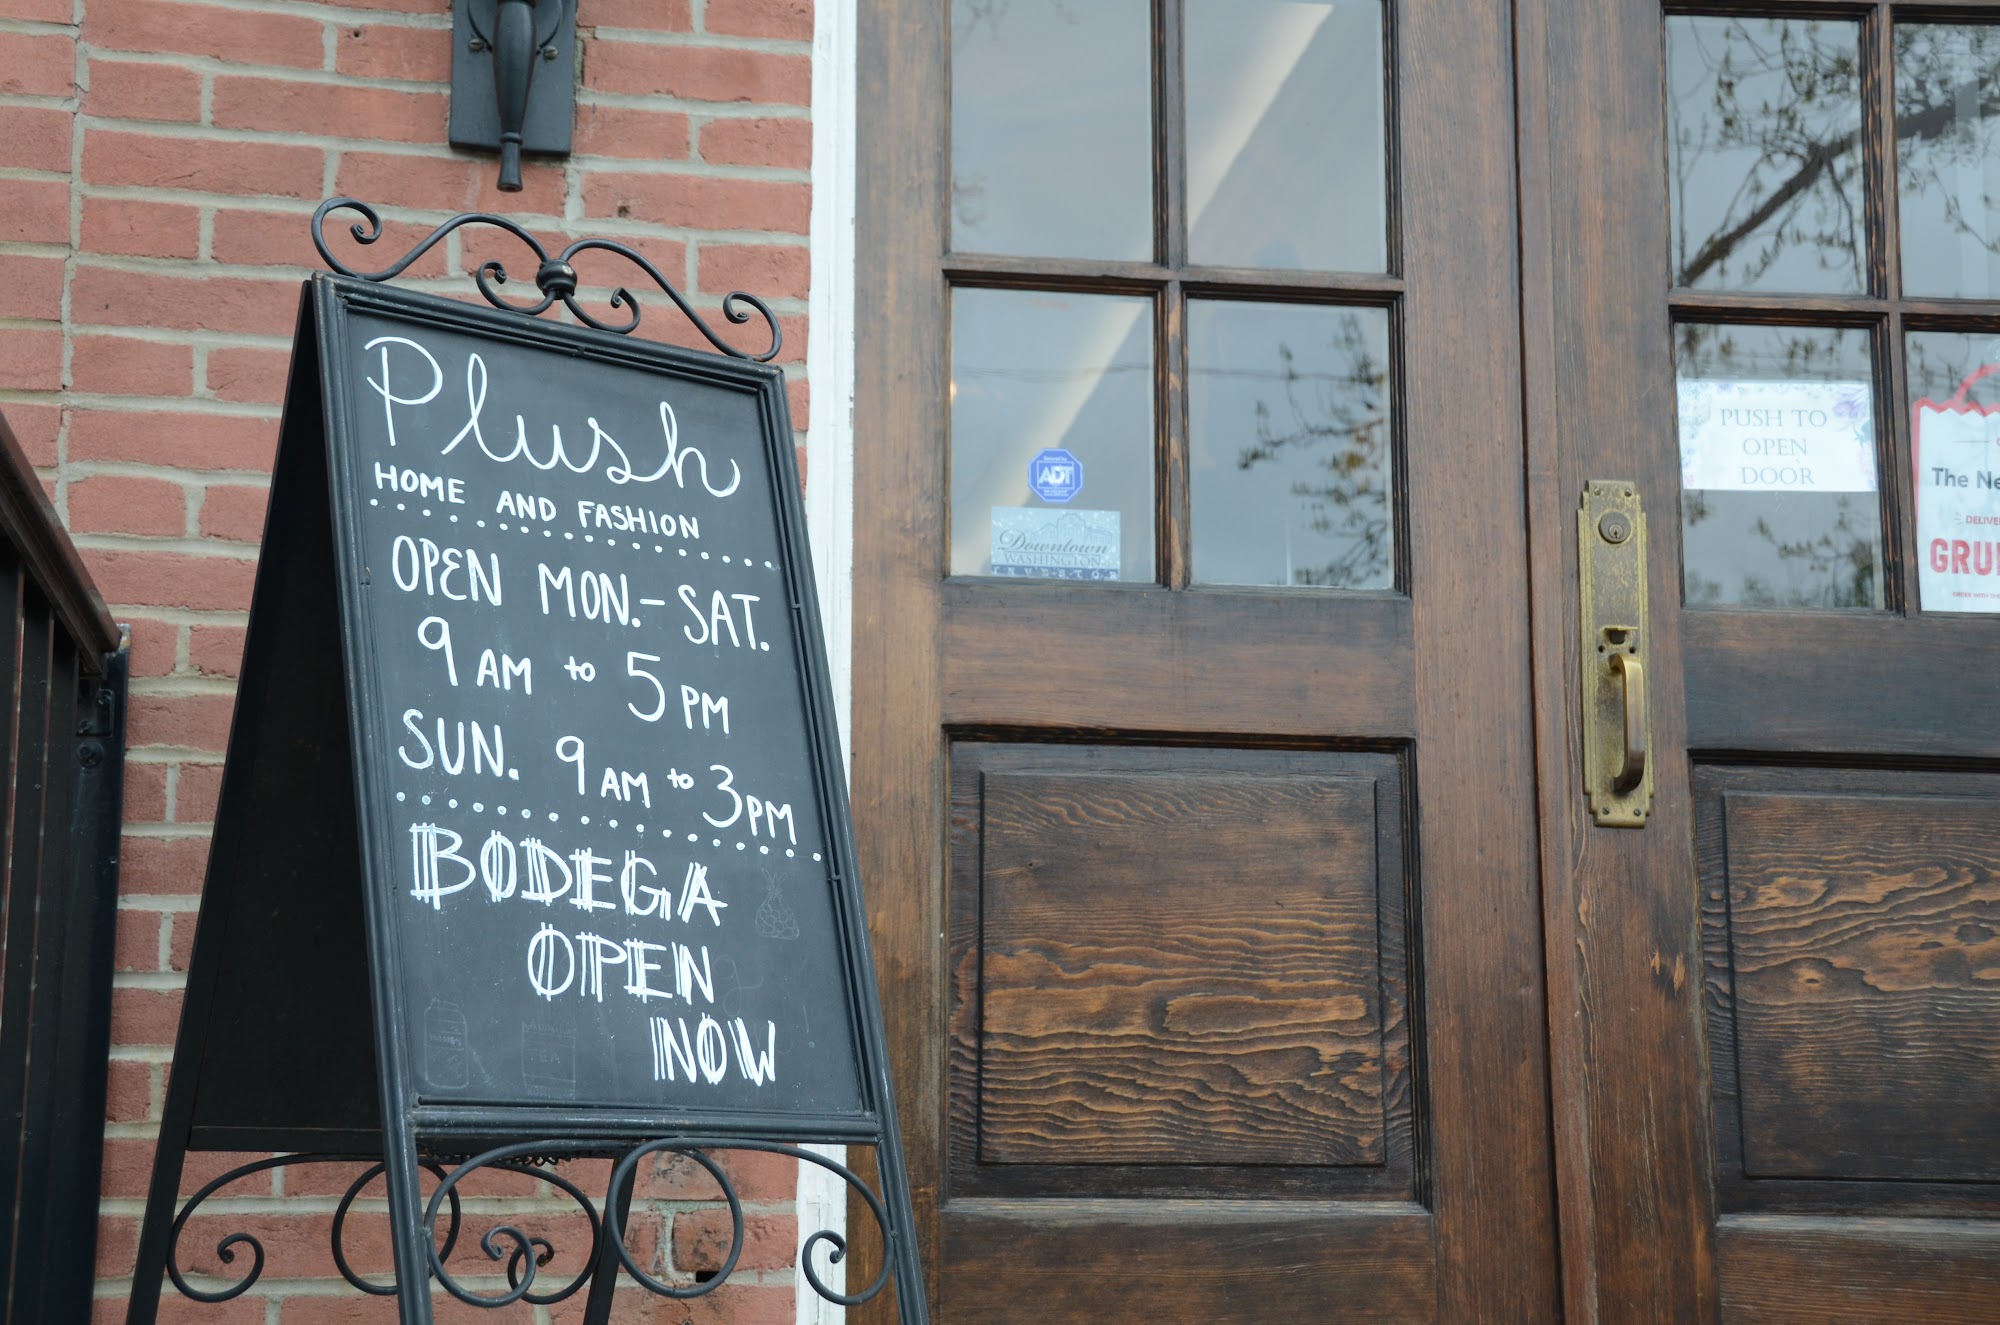 Plush
HOME AND FASHION
OPEN MON.-SAT.
9 AM to 5 PM
SUN. 9 AM to 3 PM
BODEGA
OPEN
NOW
TEA
ADT
Downtown
WASHINGTON
INVESTOR
PUSH TO
OPEN
DOOR
The Ne
DELIVE
GRU